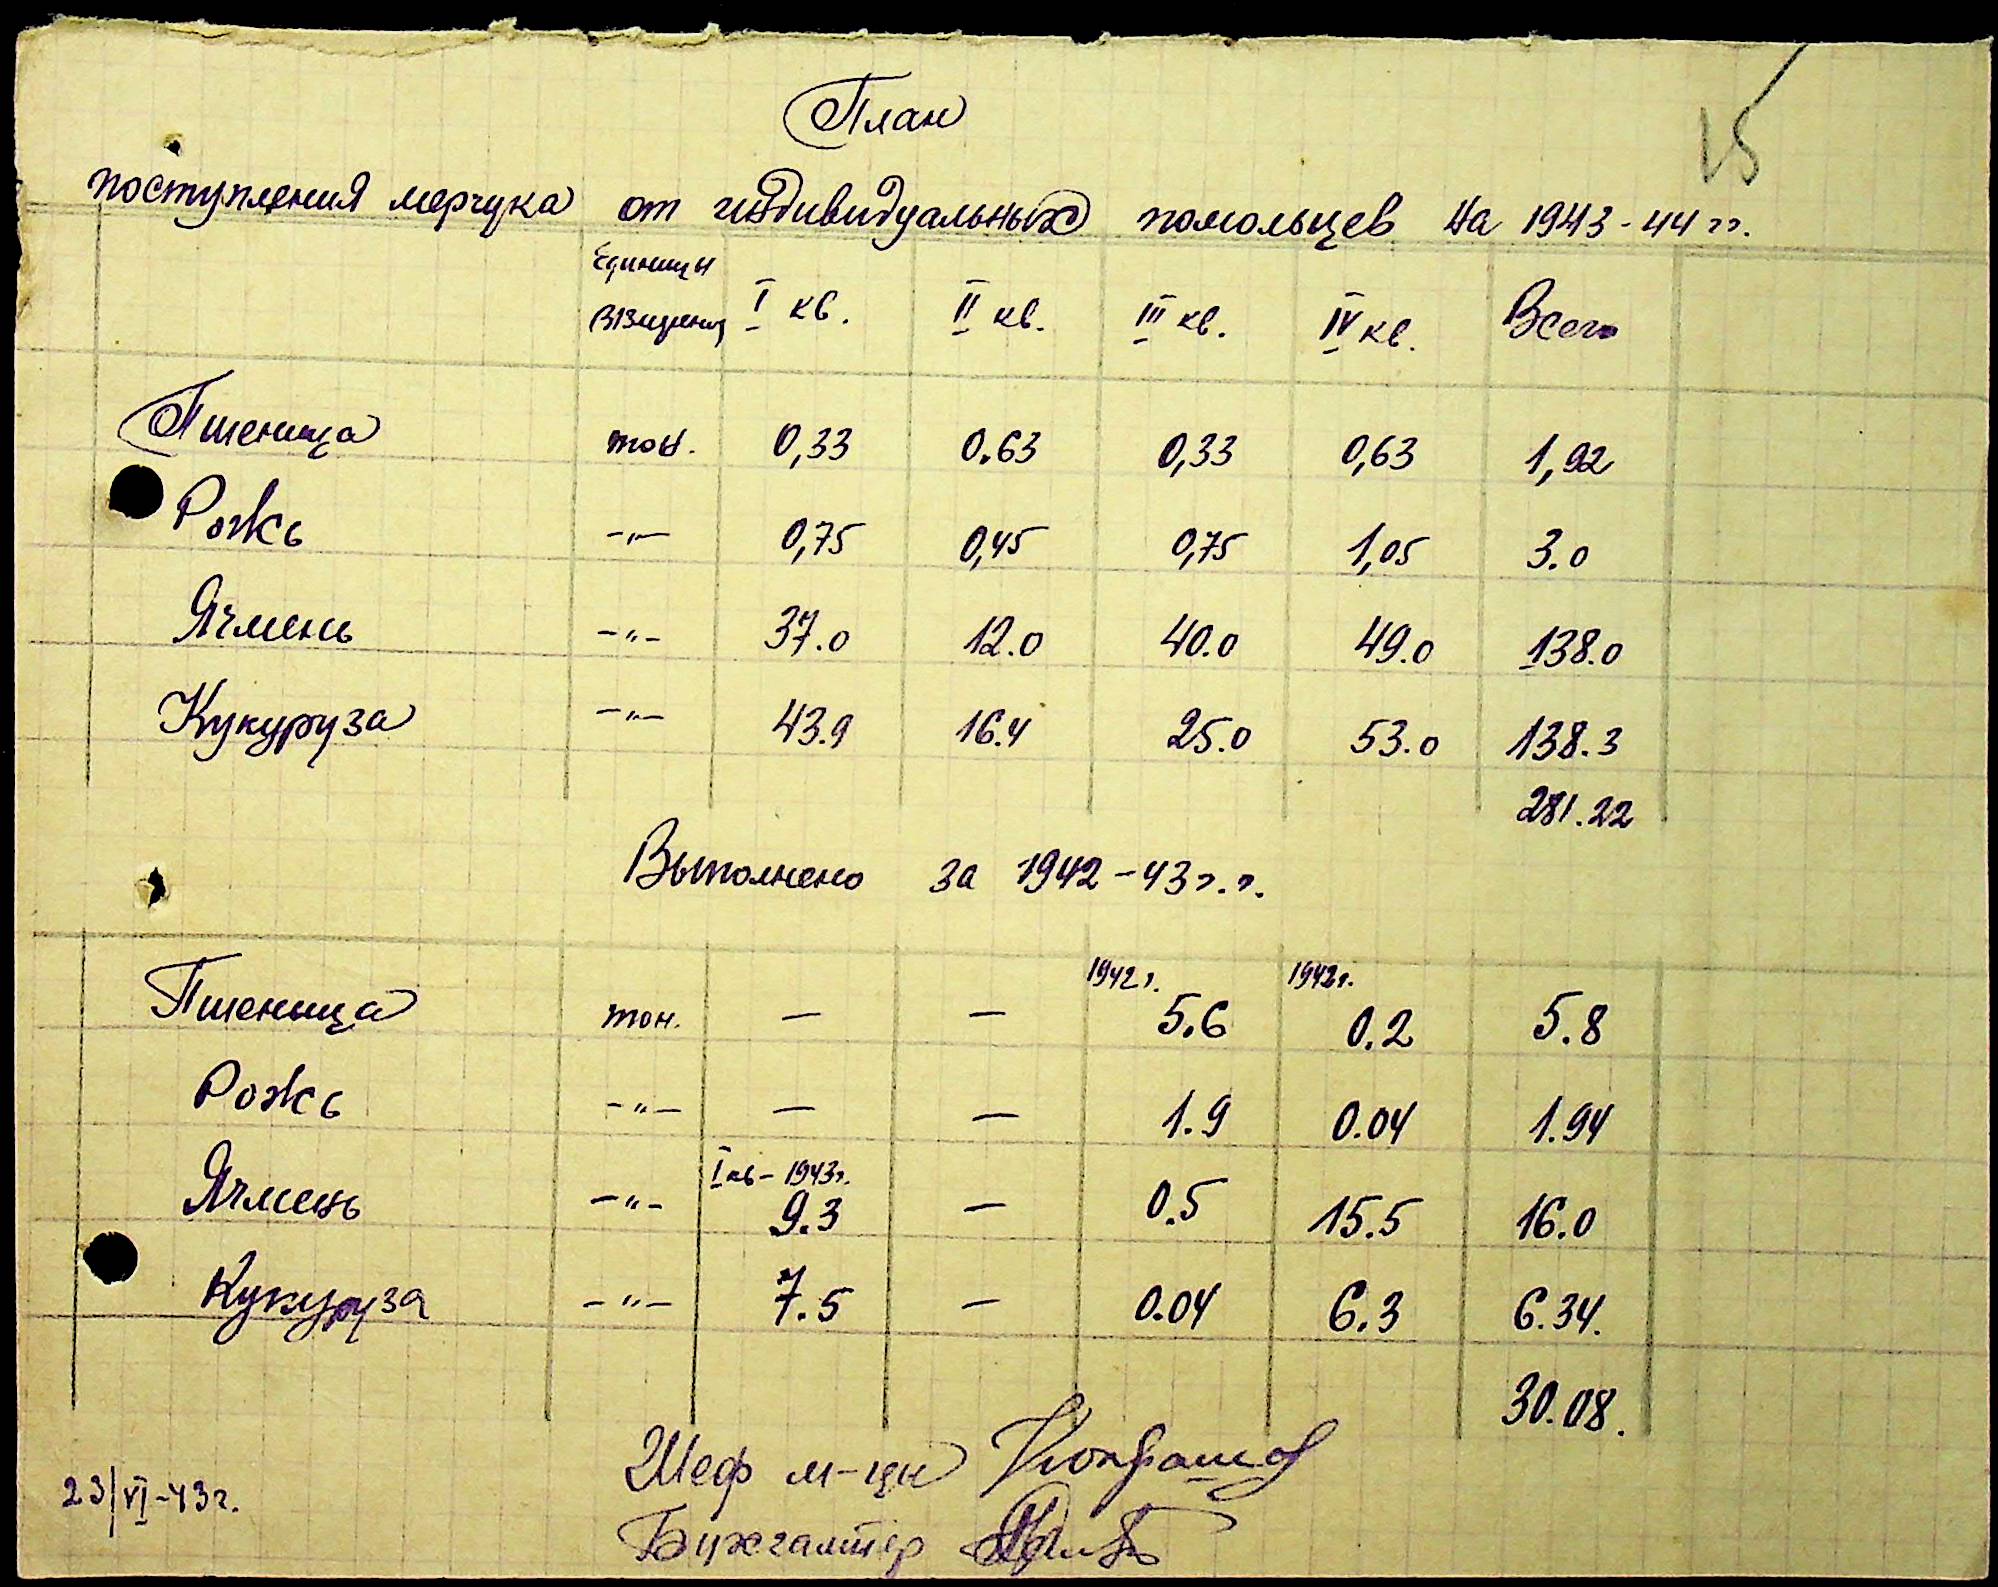 15
План
поступления мерчука от индивидуальных помольцев на 1943-44 гг.
Единицы взмцения I кв. II кв. III кв. IV кв. Всего
Пшеница тон. 0,33 0.63 0,33 0,63 1,92
Рожь -"- 0,75 0,45 0,75 1,05 3.0
Ячмень -"- 37.0 12.0 40.0 49.0 138.0
Кукуруза -"- 43.9 16.4 25.0 53.0 138.3
281.22
Выполнено за 1942-43 г.г.
1942 г. 1942 г.
Пшеница тон. — — 5.6 0.2 5.8
Рожь -"- — — 1.9 0.04 1.94
I кв - 1943 г.
Ячмень -"- 9.3 — 0.5 15.5 16.0
Кукуруза -"- 7.5 — 0.04 6.3 6.34.
30.08.
Шеф м-цы
Бухгалтер
23/VI-43 г.